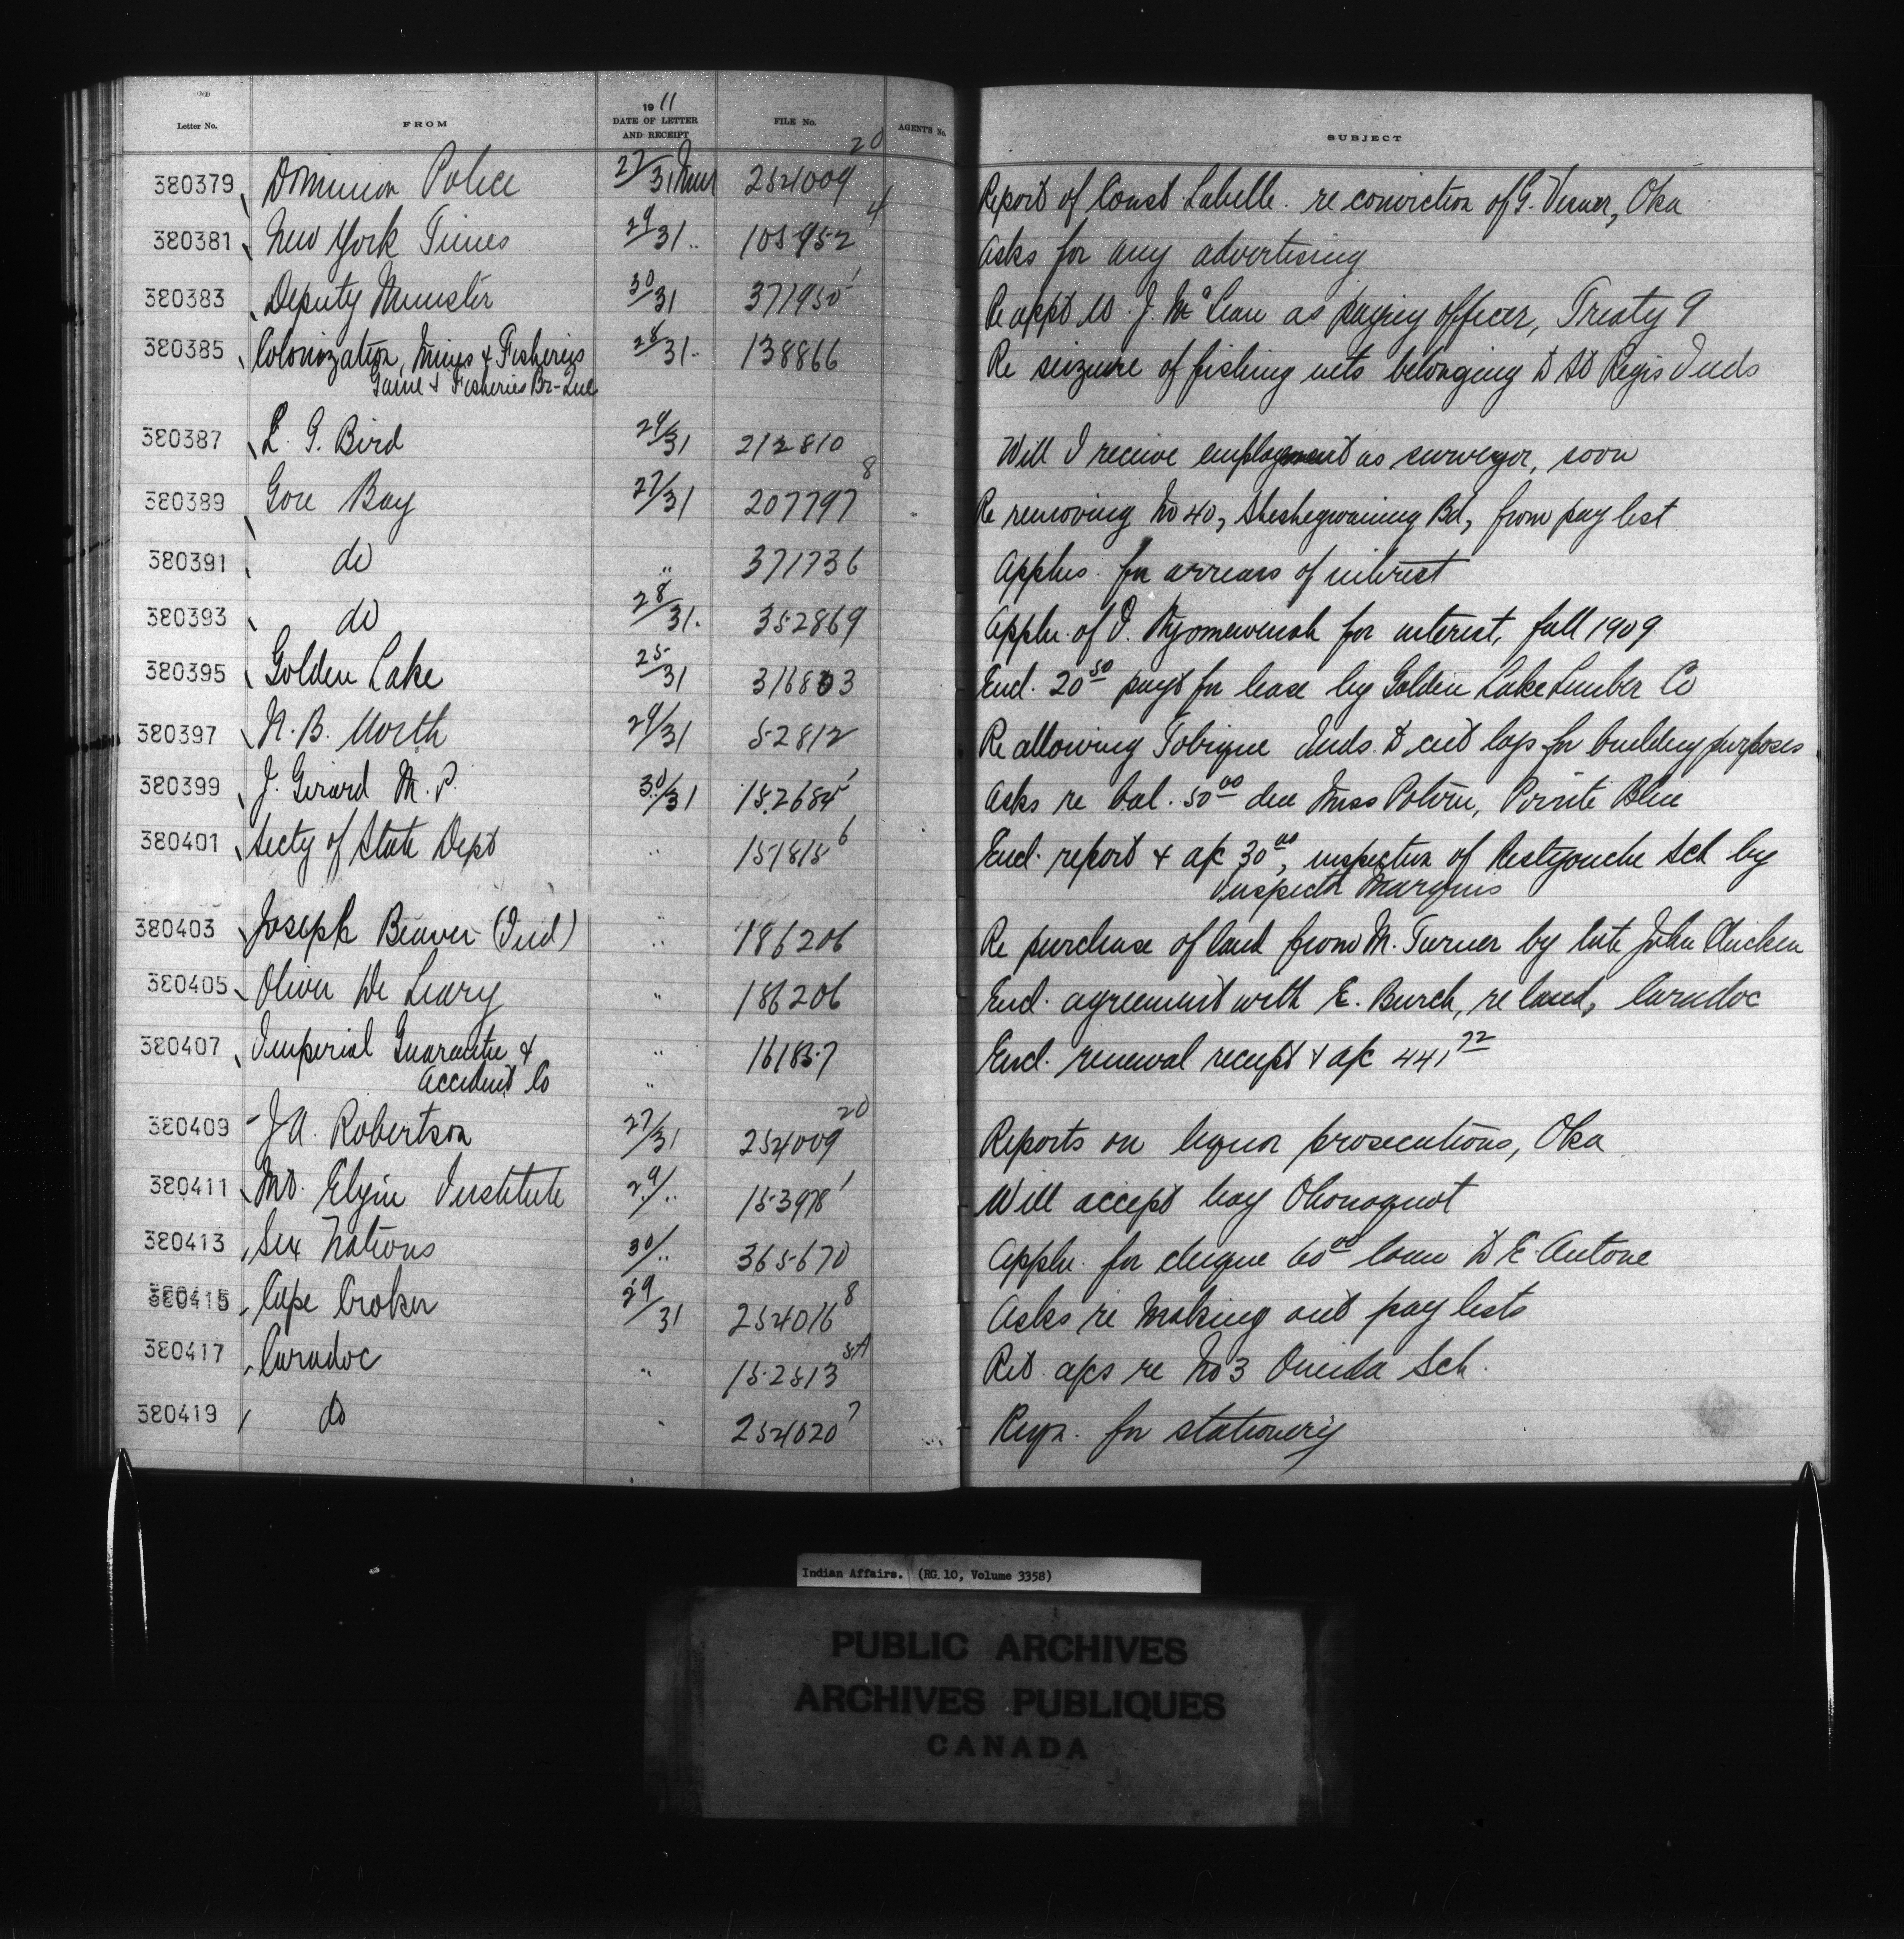 Letter No. FROM 1911 DATE OF LETTER AND RECEIPT FILE No. AGENT'S No. SUBJECT
380379 Dominion Police 27/31 254009 20 Report of Const Labelle re conviction of G. Oka
380381 New York Times 29/31 " 105952 4 Asks for any advertising
380383 Deputy Minister 30/31 371950 1 Re appt W. J. McLean as paying officer, Treaty 9
380385 Colonization, Mines & Fisheries 28/31 " 138866 Re seizure of fishing nets belonging to St Regis Inds
Game & Fisheries Br-Que
380387 L. G. Bird 29/31 212810 Will I receive employment as surveyor, soon
380389 Gore Bay 27/31 207797 8 Re removing No 40, Sheshegwaning Bd, from pay list
380391 do " 371736 Applns. for arrears of interest
380393 do 28/31. 352869 Appln. of for interest, fall 1909
380395 Golden Lake 25/31 316803 Encl. 20 50 payt for lease by Golden Lake Lumber Co
380397 N. B. North 29/31 52812 Re allowing Tobique Inds. to cut logs for building purposes
380399 J. Girard M. P. 30/31 152684 1 Asks re bal. 50 00 due Miss Potvin, Pointe Bleue
380401 Secty of State Dept " 151815 6 Encl. report & a/c 30 00, inspection of Restigouche Sch by
Inspector Marquis
380403 Joseph Beaver (Ind) " 186206 Re purchase of land from M. Turner by late John Chicken
380405 Oliver De Leary " 186206 Encl. agreement with E. Burch, re land, Caradoc
380407 Imperial Guarantee & " 161857 Encl. renewal receipt & a/c 441 72
Accident Co "
380409 J. A. Robertson 27/31 254009 20 Reports on liquor prosecutions, Oka
380411 Mt. Elgin Institute 29/" 153978 1 Will accept boy
380413 Six Nations 30/" 365670 Appln. for cheque 60 00 loan to E. Antone
380415 Cape Croker 29/31 254016 8 Asks re making out pay lists
380417 Caradoc " 152513 5A Ret. a/cs re No 3 Oneida Sch.
380419 do " 254020 7 Reqn. for stationery
Indian Affairs. (RG 10, Volume 3358)
PUBLIC ARCHIVES
ARCHIVES PUBLIQUES
CANADA